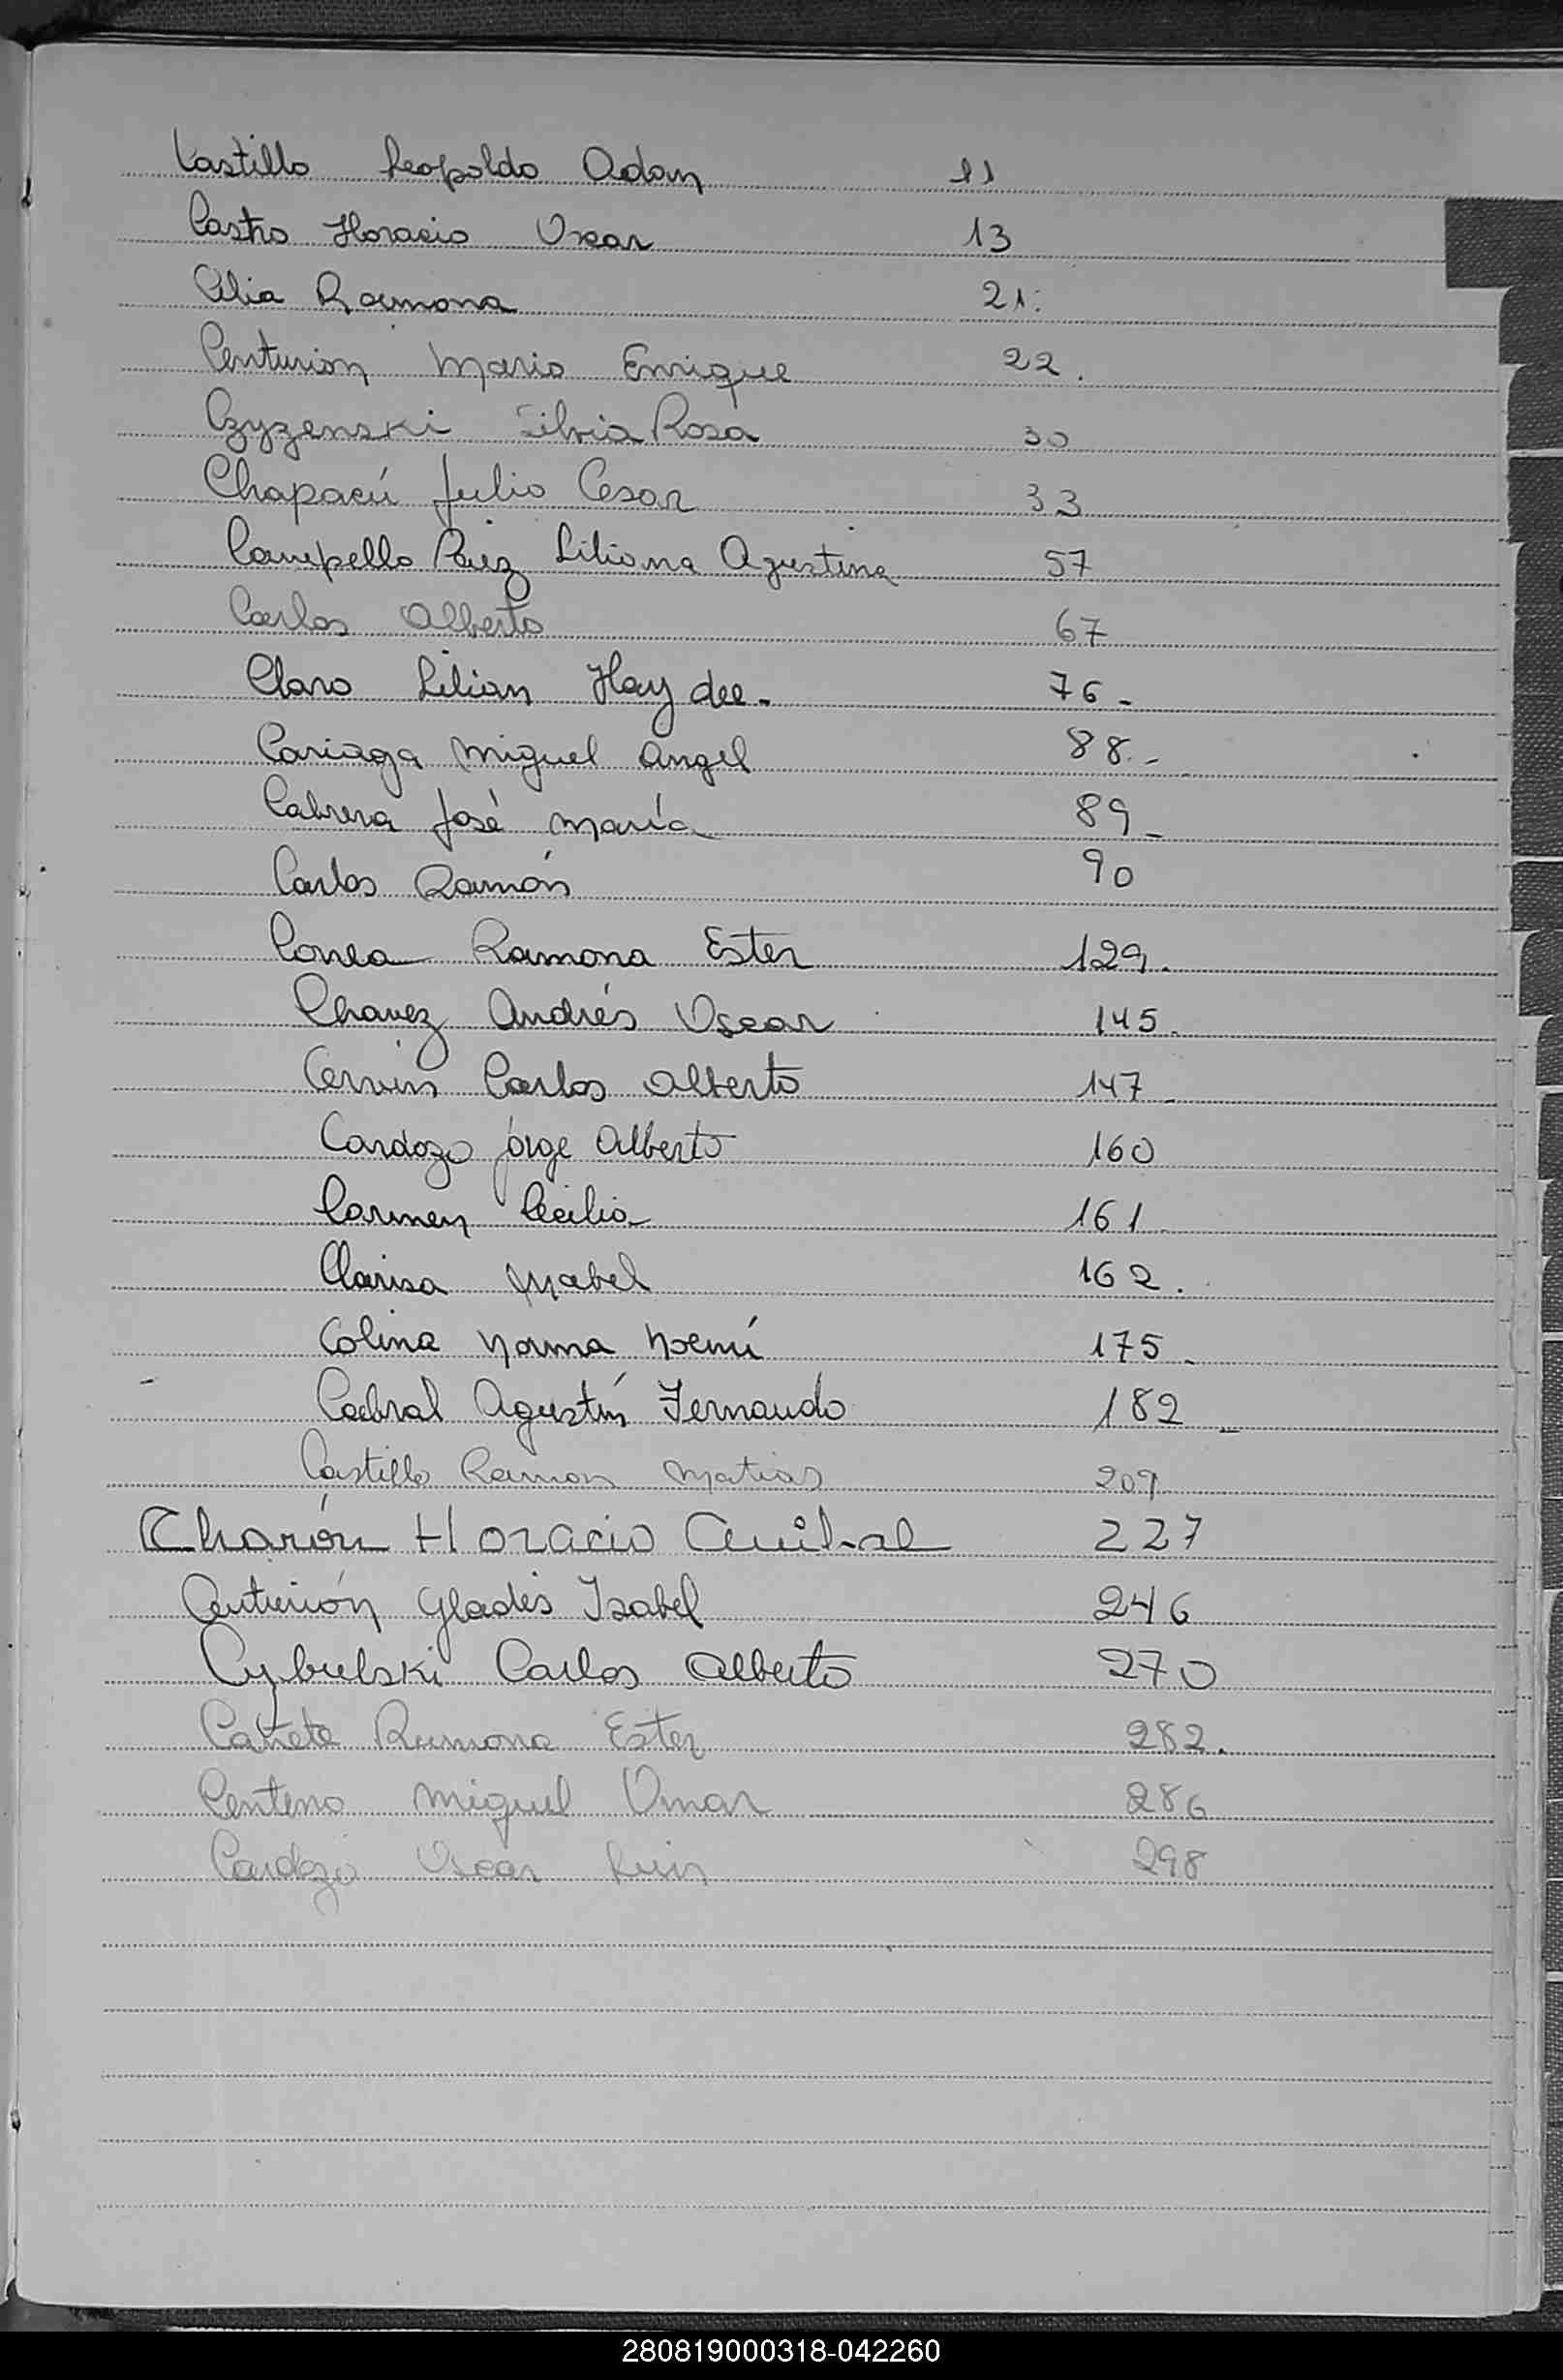 Castillo Leopoldo Adan 11
Castro Horacio Oscar 13
Celia Ramona 21.
Centurión Mario Enrique 22.
Czyzenski Silvia Rosa 30
Chapacú Julio Cesar 33
Campello Paez Liliana Agustina 57
Carlos Alberto 67
Claro Lilian Haydee. 76-
Cariaga Miguel Angel 88.-
Cabrera José María 89-
Carlos Ramón 90
Correa Ramona Ester 129.
Chavez Andrés Oscar 145.
Carlos Alberto 147-
Cardozo Jorge Alberto 160
Carmen Cecilia 161
Clarisa Mabel 162.
Colina Norma Noemí 175-
Cabral Agustín Fernando 182-
Castillo Ramon Matias 209
Charón Horacio Anibal 227
Centurión Gladis Isabel 246
Cybulski Carlos Alberto 270
Cañete Ramona Ester 282.
Centeno Miguel Omar 286
Cardozo Oscar Luis 298
280819000318-042260